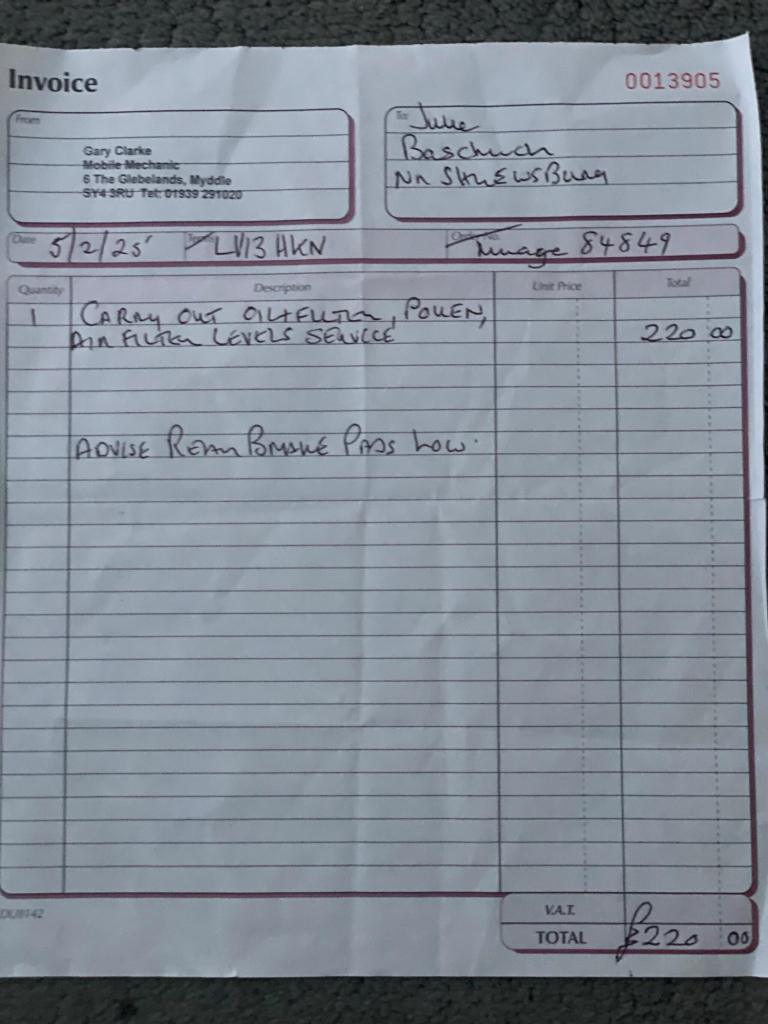 Invoice
0013905
From
Gary Clarke
Mobile Mechanic
6 The Glebelands, Myddle
SY4 3RU Tel: 01939 291020
To:
Julie
Baschurch
Nr SHREWSBURY
Date 5/2/25 LV13 HKN Order No. Mileage 84849
Quantity Description Unit Price Total
1 CARRY OUT OIL+FILTER, POLLEN,
AIR FILTER LEVELS SERVICE 220 00
ADVISE REAR BRAKE PADS LOW.
DU8142
V.A.T.
TOTAL £220 00